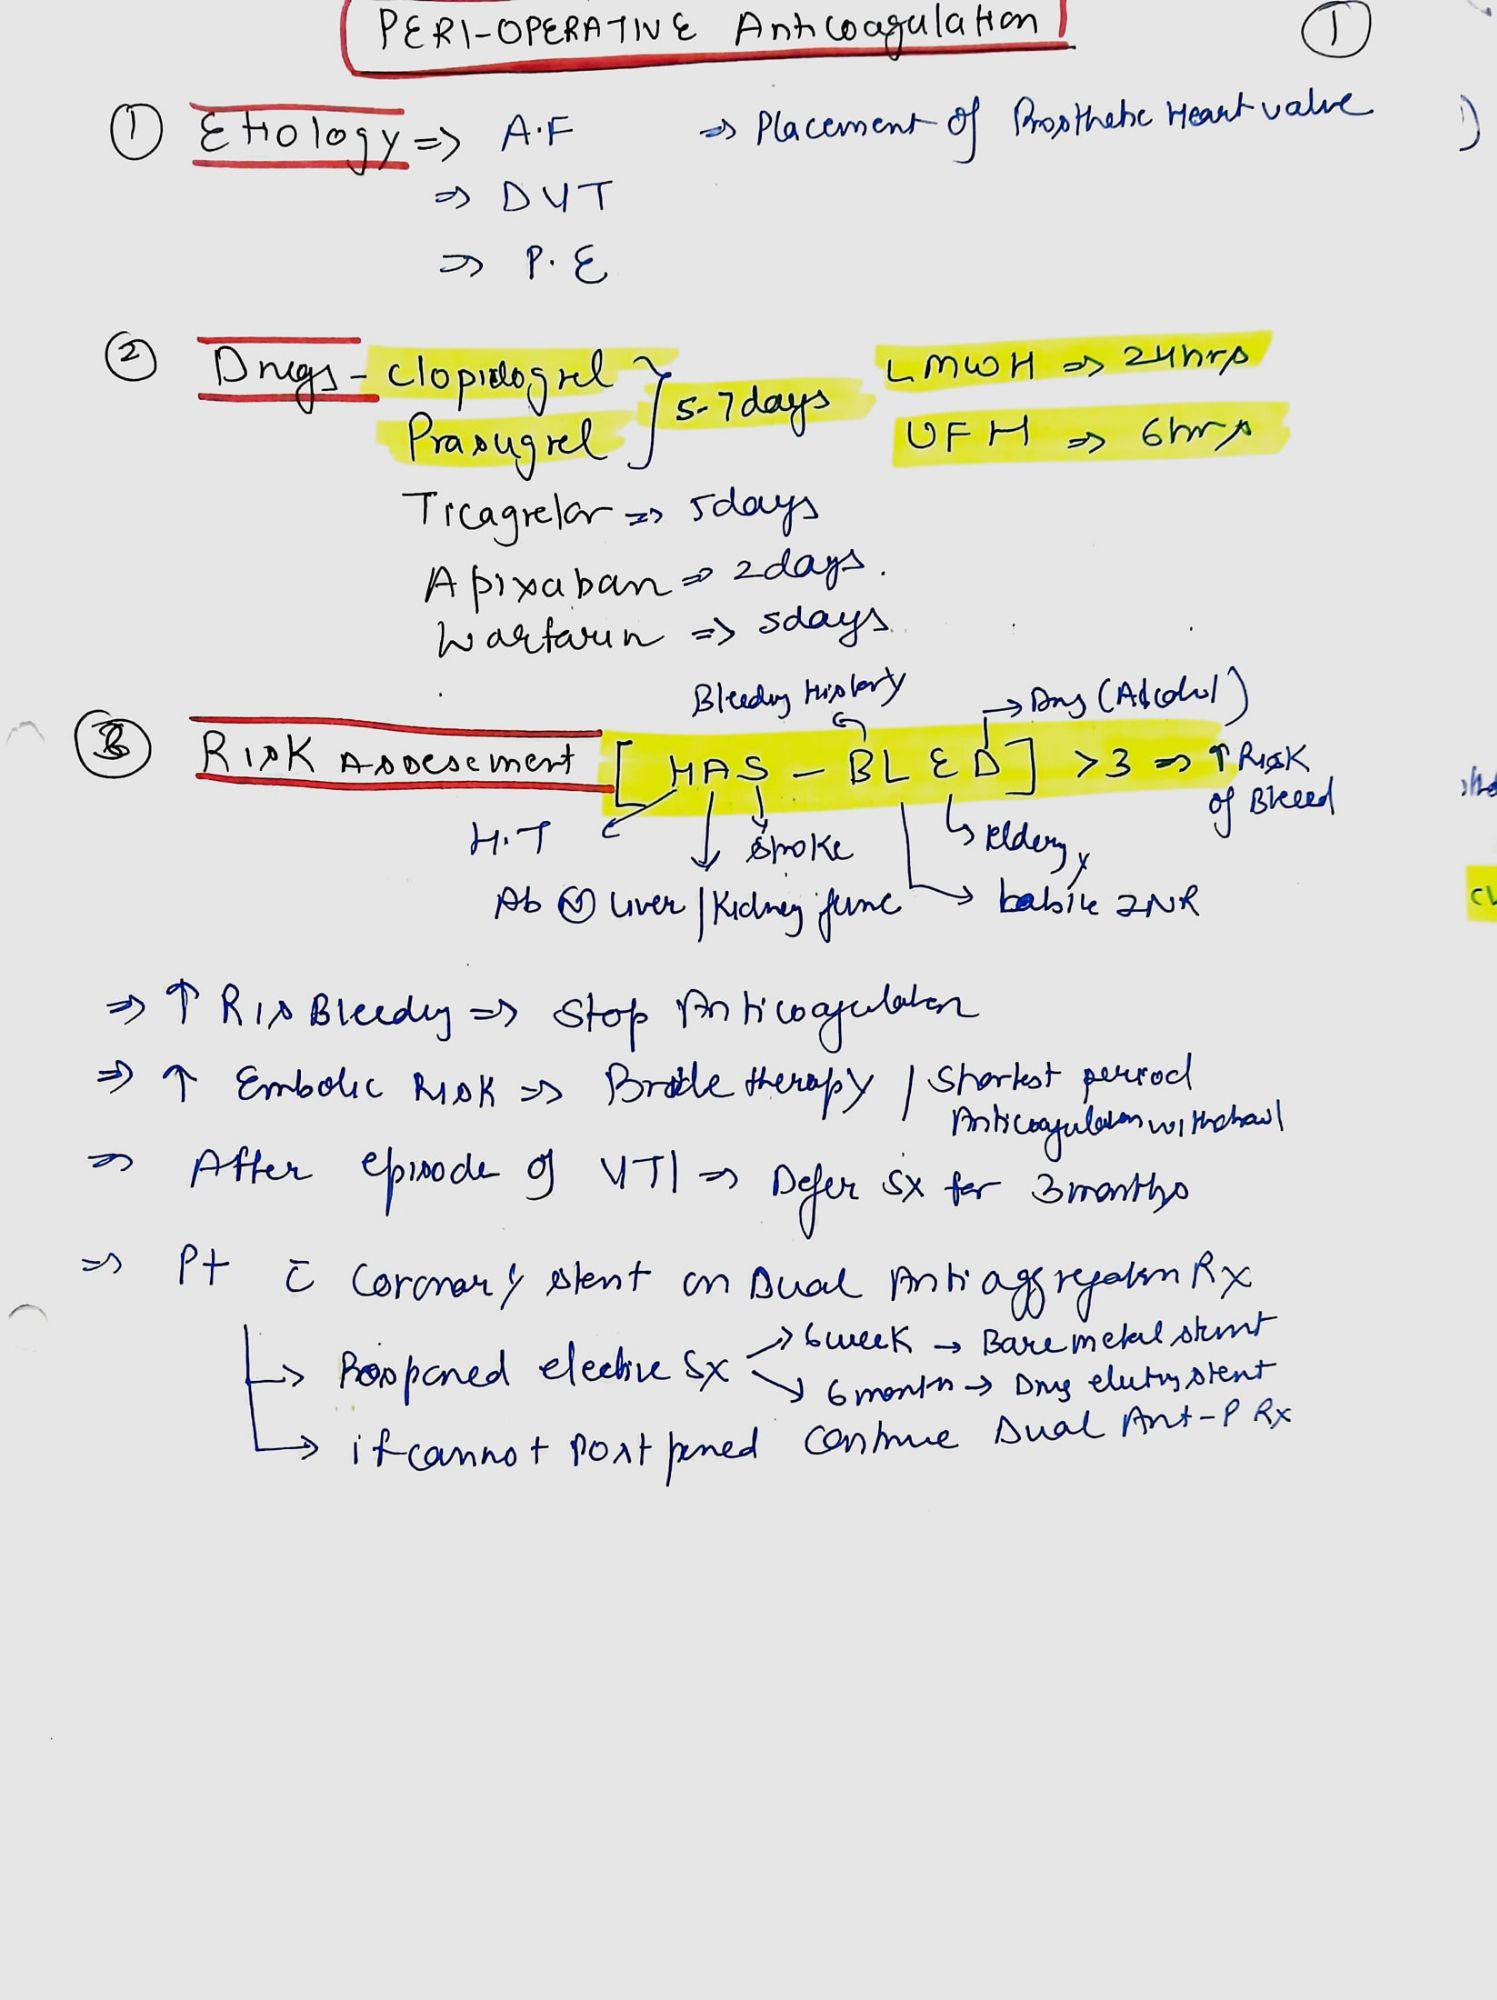 PERI-OPERATIVE Anticoagulation
①
① Etiology => A.F => Placement of Prosthetic Heart valve
=> DVT
=> P.E
② Drugs - Clopidogrel } 5-7days LMWH => 24hrs
Prasugrel UFH => 6hrs
Ticagrelor => 5days
Apixaban => 2days.
Warfarin => 5days
Bleeding History → Drug (Alcohol)
③ Risk Assessement [HAS - BLED] >3 => ↑ Risk
of Bleed
H.T Stroke Eldery
Ab Ⓝ Liver / Kidney func → labile INR
=> ↑ Ris Bleedig => Stop Anticoagulation
=> ↑ Embolic Risk => Bridle therapy / Shortest period
Anticoagulation withdrawl
=> After episode of VTI => Defer Sx for 3 months
=> Pt c̄ Coronary stent on Dual Anti aggregation Rx
→ Pospaned elective Sx → 6 week → Bare metal stent
→ 6 months → Drug eluting stent
→ if cannot Postpaned Continue Dual Ant-P Rx